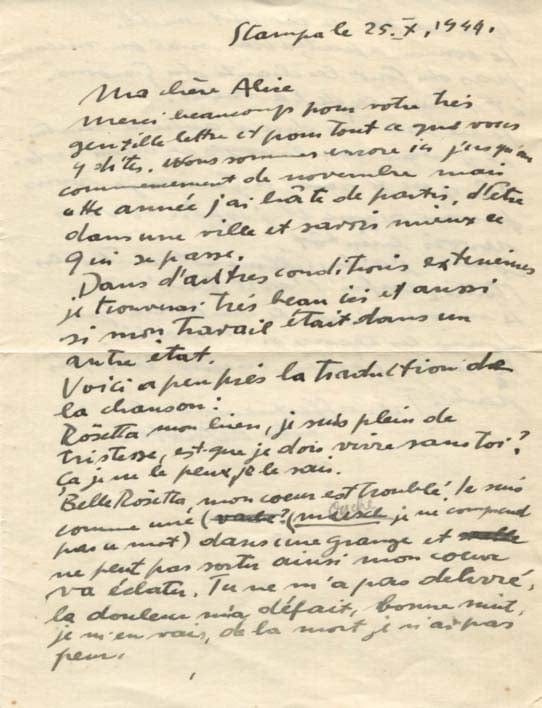 Stampa le 25. X, 1944.
Ma chère Alice
Merci beaucoup pour votre très
gentille lettre et pour tout ce que vous
y dites. Nous sommes encore ici jusqu'au
commencement de novembre mais
cette année j'ai hâte de partir, d'être
dans une ville et savoir mieux ce
qui se passe.
Dans d'autres conditions exterieures
je trouverai très beau ici et aussi
si mon travail était dans un
autre état.
Voici a peu près la traduction de
la chanson:
Rosetta mon bien, je suis plein de
tristesse, est-que je dois vivre sans toi?
Ça je ne le peux, je le sais.
Belle Rosetta, mon coeur est troublé. Je suis
comme une (vache? (je ne comprend
pas ce mot) dans une grange et
ne peut pas sortir ainsi mon coeur
va éclater. Tu ne m'a pas delivré,
la douleur m'a défait, bonne nuit,
je m'en vais, de la mort je n'ai pas
peur.